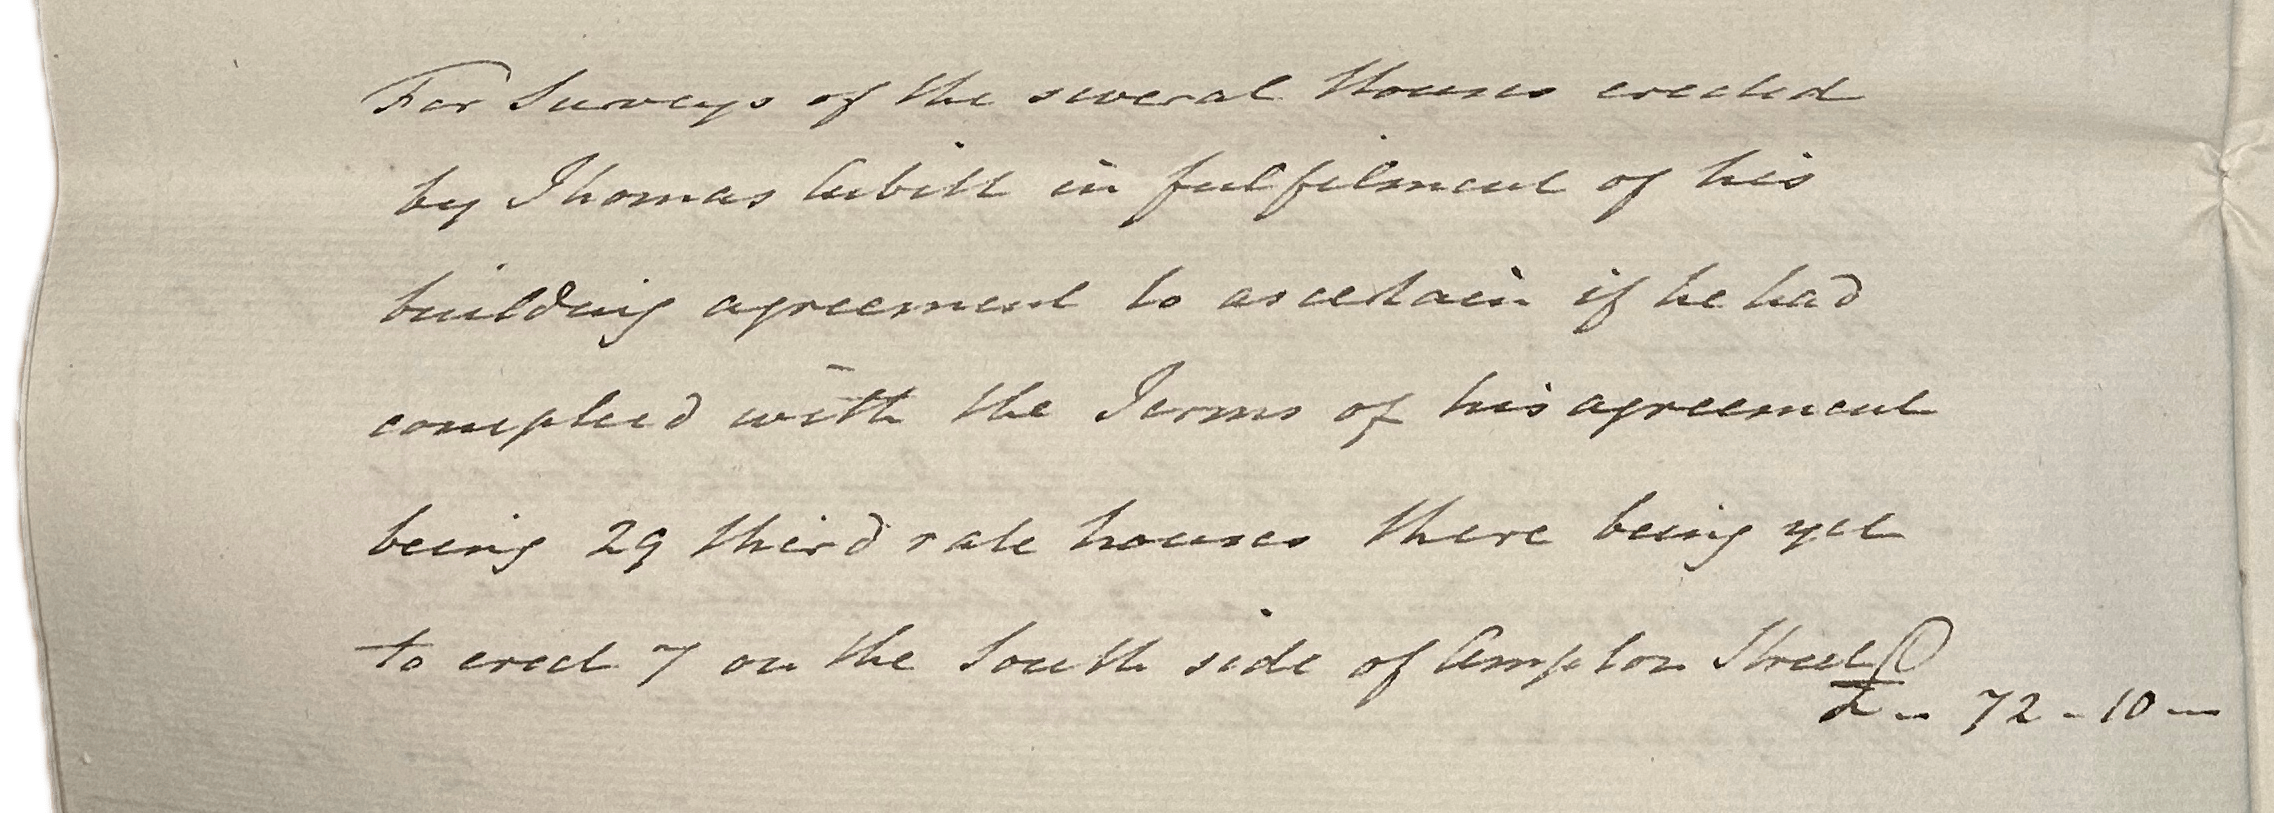 For Surveys of the several Houses erected
by Thomas Cubitt in fulfilment of his
building agreement to ascertain if he had
complied with the Terms of his agreement
being 29 third rate houses there being yet
to erect 7 on the South side of Ampton Street
£ - 72 - 10 -